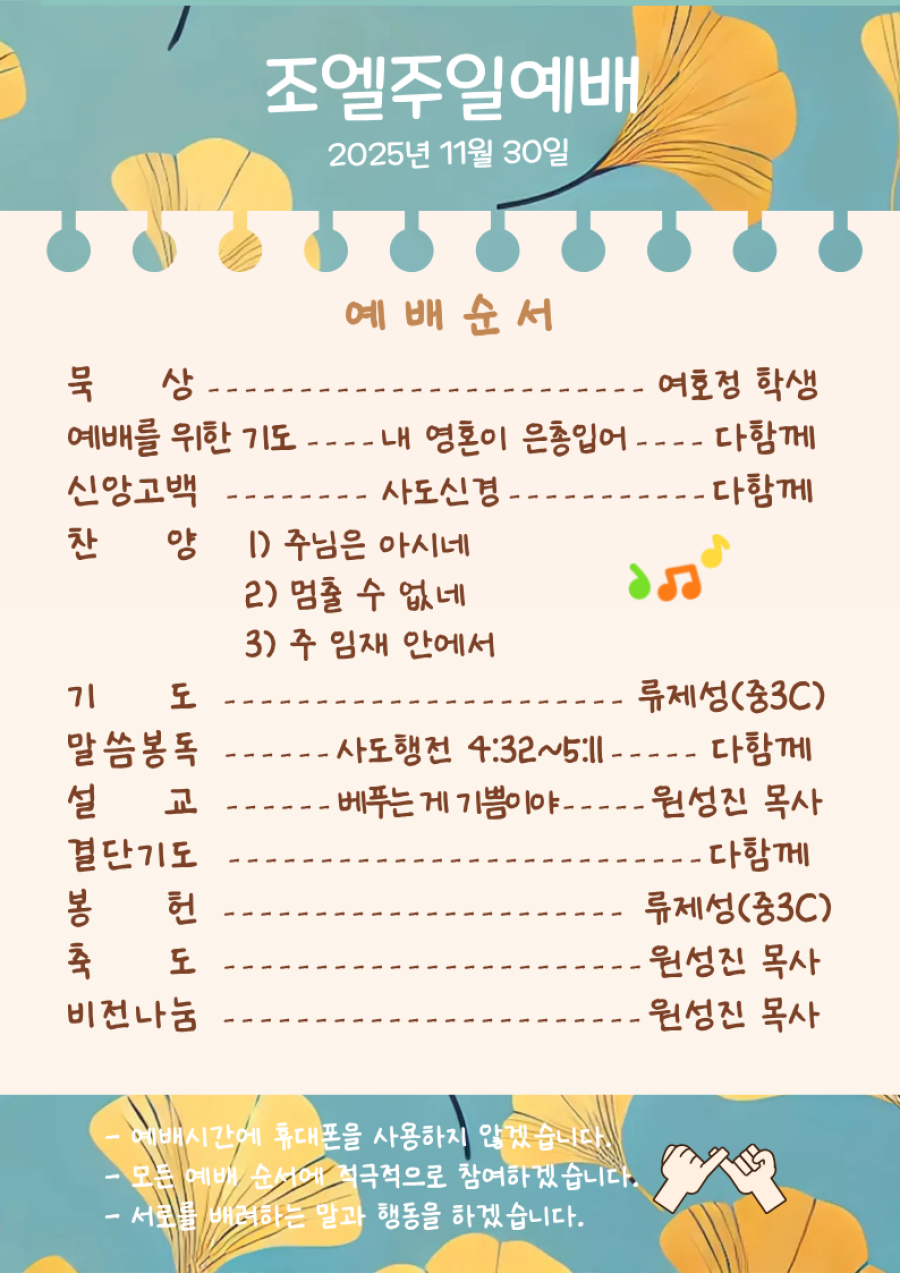 조엘주일예배
2025년 11월 30일
예배순서
묵 상 ------------------------ 여호정 학생
예배를 위한 기도 ---- 내 영혼이 은총입어 ---- 다함께
신앙고백 -------- 사도신경 ----------- 다함께
찬 양 1) 주님은 아시네
2) 멈출 수 없네
3) 주 임재 안에서
기 도 ---------------------- 류제성(중3C)
말씀봉독 ------ 사도행전 4:32~5:11 ----- 다함께
설 교 ------ 베푸는 게 기쁨이야 ----- 원성진 목사
결단기도 -------------------------- 다함께
봉 헌 ---------------------- 류제성(중3C)
축 도 ----------------------- 원성진 목사
비전나눔 ----------------------- 원성진 목사
- 예배시간에 휴대폰을 사용하지 않겠습니다.
- 모든 예배 순서에 적극적으로 참여하겠습니다.
- 서로를 배려하는 말과 행동을 하겠습니다.